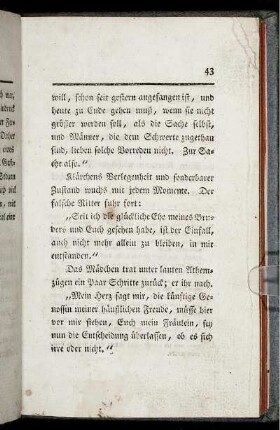 43
will, schon seit gestern angefangen ist, und
heute zu Ende gehen muß, wenn sie nicht
größer werden soll, als die Sache selbst,
und Männer, die dem Schwerte zugethan
sind, lieben solche Vorreden nicht. Zur Sa-
che also."
Klärchens Verlegenheit und sonderbarer
Zustand wuchs mit jedem Momente. Der
falsche Ritter fuhr fort:
„Seit ich die glückliche Ehe meines Bru-
ders und Euch gesehen habe, ist der Einfall,
auch nicht mehr allein zu bleiben, in mir
entstanden."
Das Mädchen trat unter lauten Athem-
zügen ein Paar Schritte zurück; er ihr nach.
„Mein Herz sagt mir, die künftige Ge-
nossen meiner häuslichen Freude, müsse hier
vor mir stehen, Euch mein Fräulein, sey
nun die Entscheidung überlassen, ob es sich
irre oder nicht."